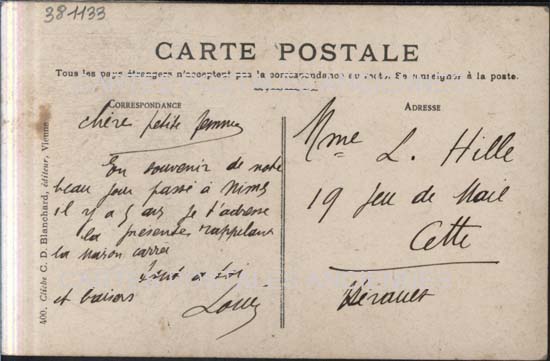 381133
CARTE POSTALE
Tous les pays étrangers n'acceptent pas la correspondance au recto. Se renseigner à la poste.
CORRESPONDANCE
ADRESSE
chère petite femme
En souvenir de notre
beau jour passé à Nimes
il y a 5 ans je t'adresse
la présente rappelant
la maison carrée
à toi
et baisers Louis
Mme L. Hille
19 Jeu de Mail
Cette
Hérault
400. Cliché C. D. Blanchard, éditeur, Vienne